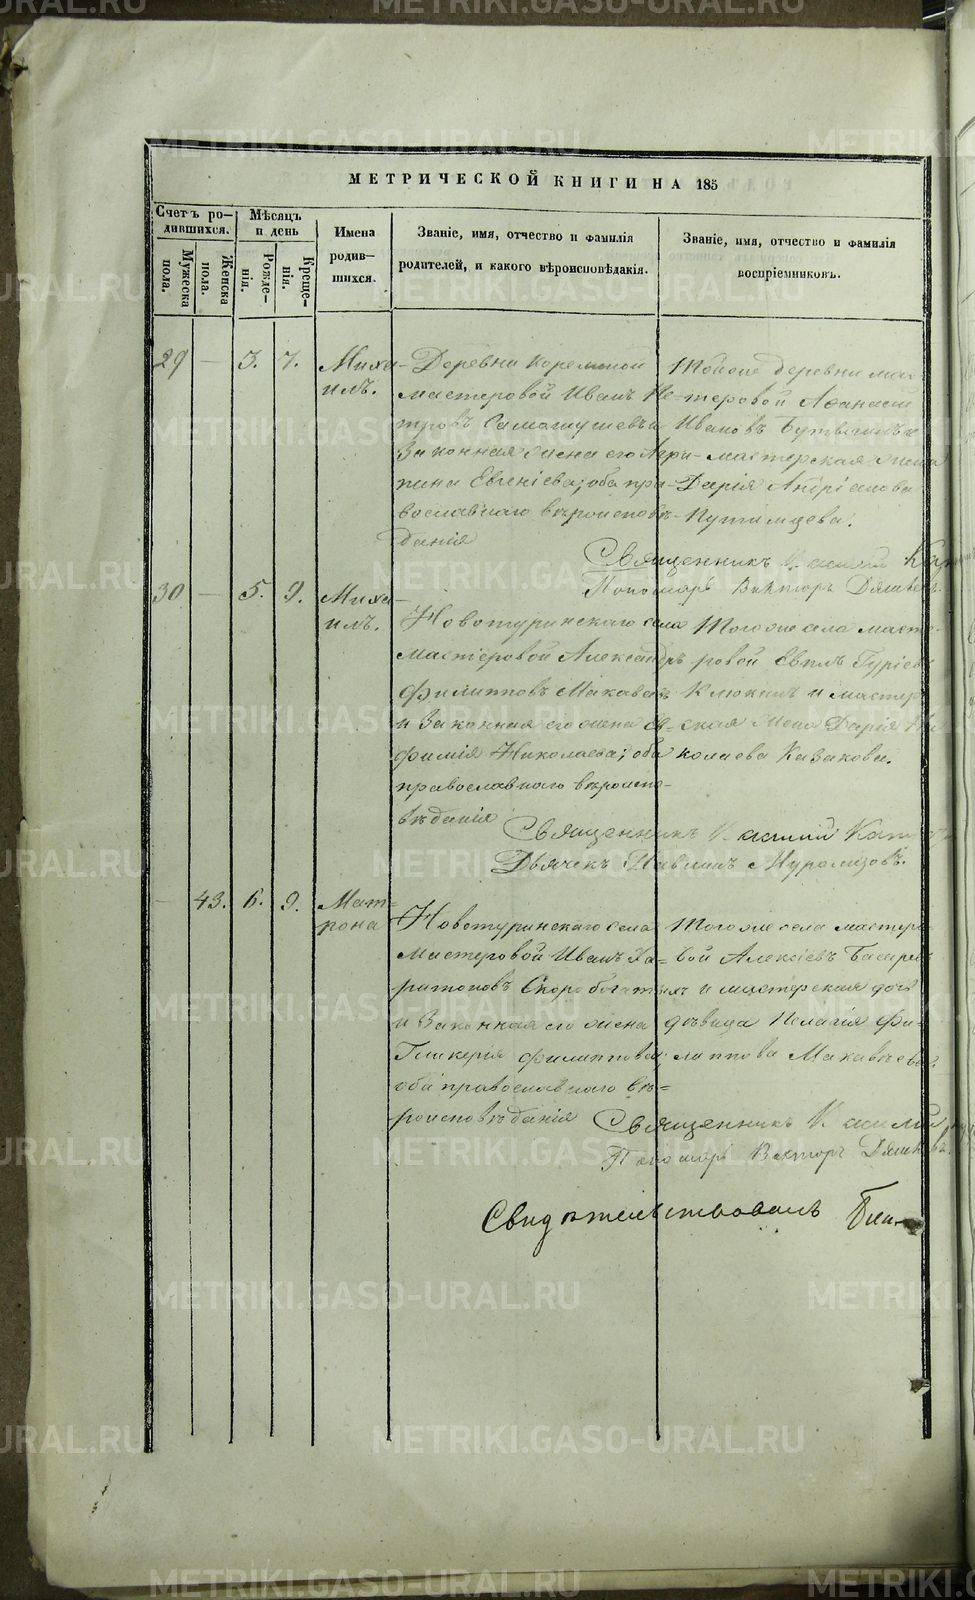 МЕТРИЧЕСКОЙ КНИГИ НА 185
Счетъ ро-
дившихся.
Мужеска
пола.
Женска
пола.
Мѣсяцъ
и день
Рожде-
нія.
Креще-
нія.
Имена
родив-
шихся.
Званіе, имя, отчество и фамилія
родителей, и какого вѣроисповѣданія.
Званіе, имя, отчество и фамилія
воспріемниковъ.
29 — 3. 7. Миха-
илъ.
Деревни
мастеровой Иванъ Пе-
тровъ и
законная жена его Агри-
пина Евгеніева; оба пра-
вославнаго вѣроисповѣ-
данія
Тойже деревни мас-
теровой Афанасій
Ивановъ и
мастерская жена
Дарія Андріанова
Путимцева.
Священникъ
Пономарь Викторъ
30 — 5. 9. Миха-
илъ.
Новотуринскаго села
мастеровой Александръ
Филипповъ
и законная его жена Ев-
фимія Николаева; оба
православнаго вѣроиспо-
вѣданія
Тогоже села масте-
ровой Евплъ Гуріевъ
Клюкинъ и мастер-
ская жена Дарія Ни-
колаева Казакова.
Священникъ
Дьячекъ Павлинъ
— 43. 6. 9. Мат-
рона
Новотуринскаго села
мастеровой Иванъ Ха-
ритоновъ Скоробогатыхъ
и законная его жена
Гликерія Филиппова;
оба православнаго вѣ-
роисповѣданія
Тогоже села мастеро-
вой Алексѣевъ
и мастерская дочь
дѣвица Пелагія Фи-
липпова Макавѣева.
Священникъ
Пономарь Викторъ
Свидѣтельствовалъ
METRIKI.GASO-URAL.RU